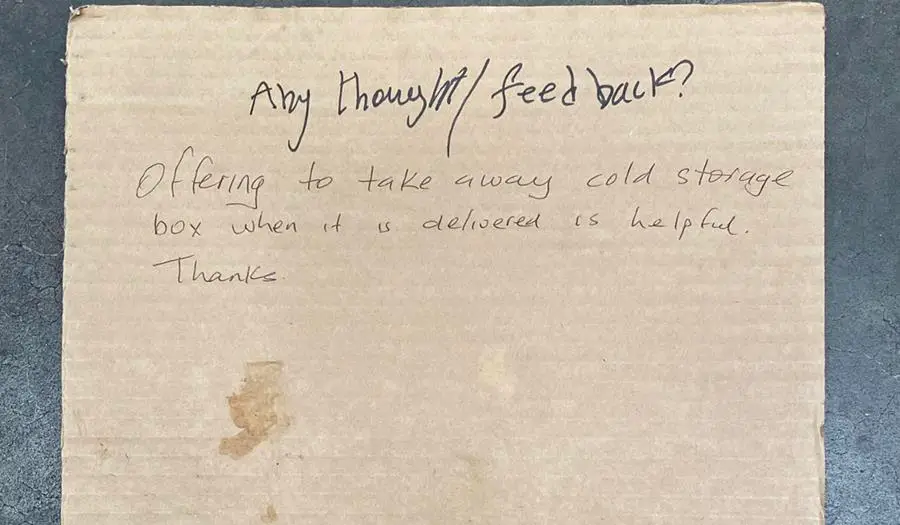 Any thought/feedback?
Offering to take away cold storage
box when it is delivered is helpful.
Thanks.